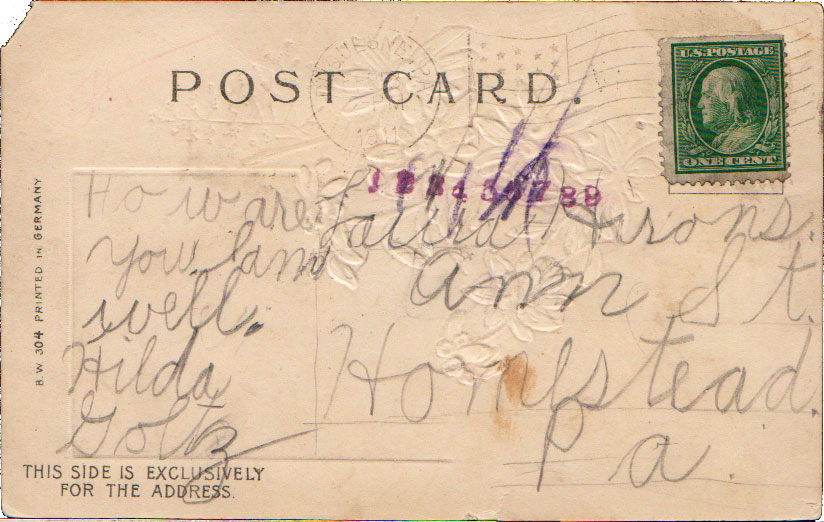 POST CARD.
1911
U.S. POSTAGE
ONE CENT
How are
you. I am
well.
Hilda
Goltz
Laura Hirons.
Ann St.
Homestead.
Pa.
B.W 304 PRINTED IN GERMANY
THIS SIDE IS EXCLUSIVELY
FOR THE ADDRESS.